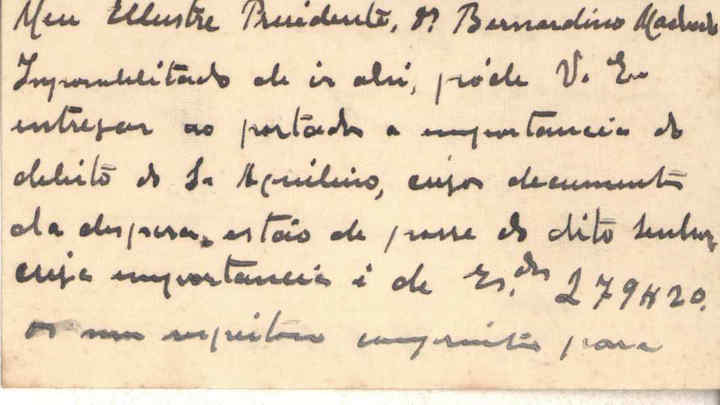 Meu Illustre Presidente, Dr Bernardino Machado
Impossibilitado de ir ahi, póde V. Ex
entregar ao portador a importancia do
debito do Sr Aquilino, cujos documentos
da despesa, estão de posse do dito senhor,
cuja importancia é de Es.dos 279$20.
Os meus respeitosos cumprimentos para